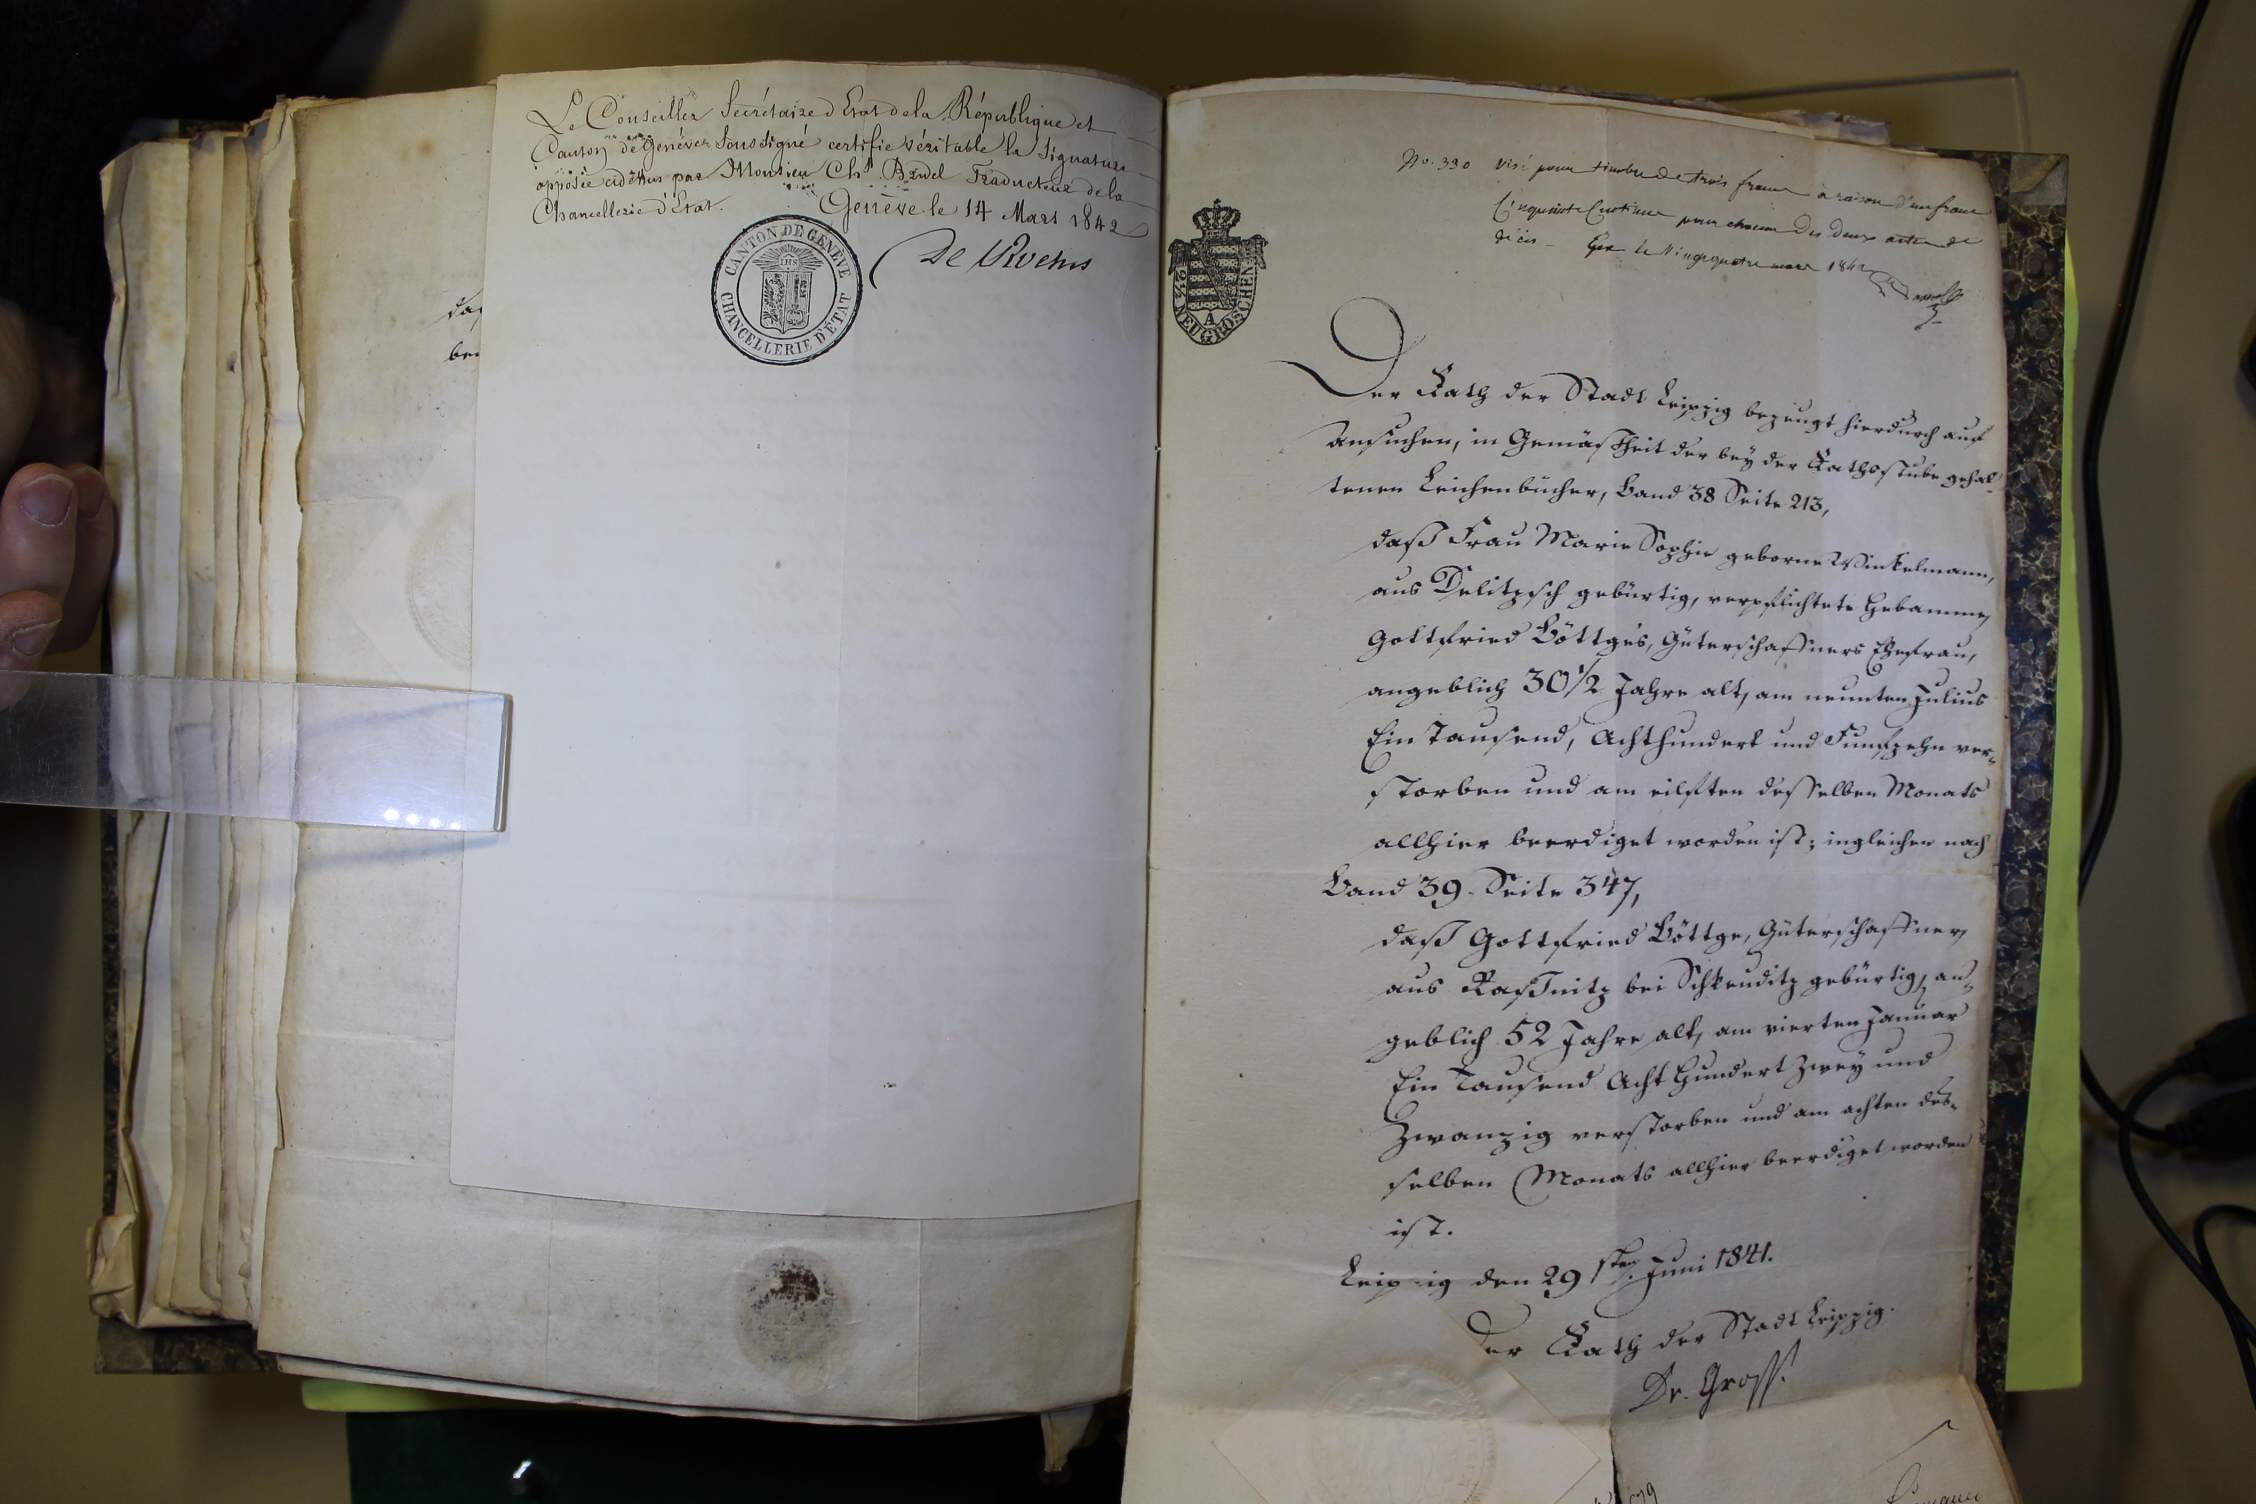 Le Conseiller Secrétaire d'Etat de la République et
Canton de Genève Soussigné certifie véritable la Signature
apposée cidessus par Monsieur Chs. Bridel Traducteur de la
Chancellerie d'Etat.
Genève le 14 Mars 1842
CANTON DE GENÈVE
CHANCELLERIE D'ETAT
De Roches
das
No. 390 Visé pour timbre de trois francs à raison d'un franc
Cinquante Centimes pour chacun des deux actes de
décès. Gex le Vingt quatre mars 1842
2½ NEUGROSCHEN
A
Der Rath der Stadt Leipzig bezeugt hierdurch auf
Ansuchen, in Gemäßheit der bey der Rathsstube gehal-
tenen Leichenbücher, Band 38 Seite 213,
daß Frau Marie Sophie geborne Winkelmann,
aus Delitzsch gebürtig, verpflichtete Hebamme,
Gottfried Böttge's, Güterschaffners Ehefrau,
angeblich 30½ Jahre alt, am neunten Julius
Ein Tausend, Achthundert und Funfzehn ver-
storben und am eilften desselben Monats
allhier beerdiget worden ist; ingleichen nach
Band 39. Seite 347,
daß Gottfried Böttge, Güterschaffner,
aus Raßnitz bei Schkeuditz gebürtig, an-
geblich 52 Jahre alt, am vierten Januar
Ein Tausend Acht Hundert Zwey und
Zwanzig verstorben und am achten des-
selben Monats allhier beerdiget worden
ist.
Leipzig den 29sten Juni 1841.
Der Rath der Stadt Leipzig.
Dr. Groß.